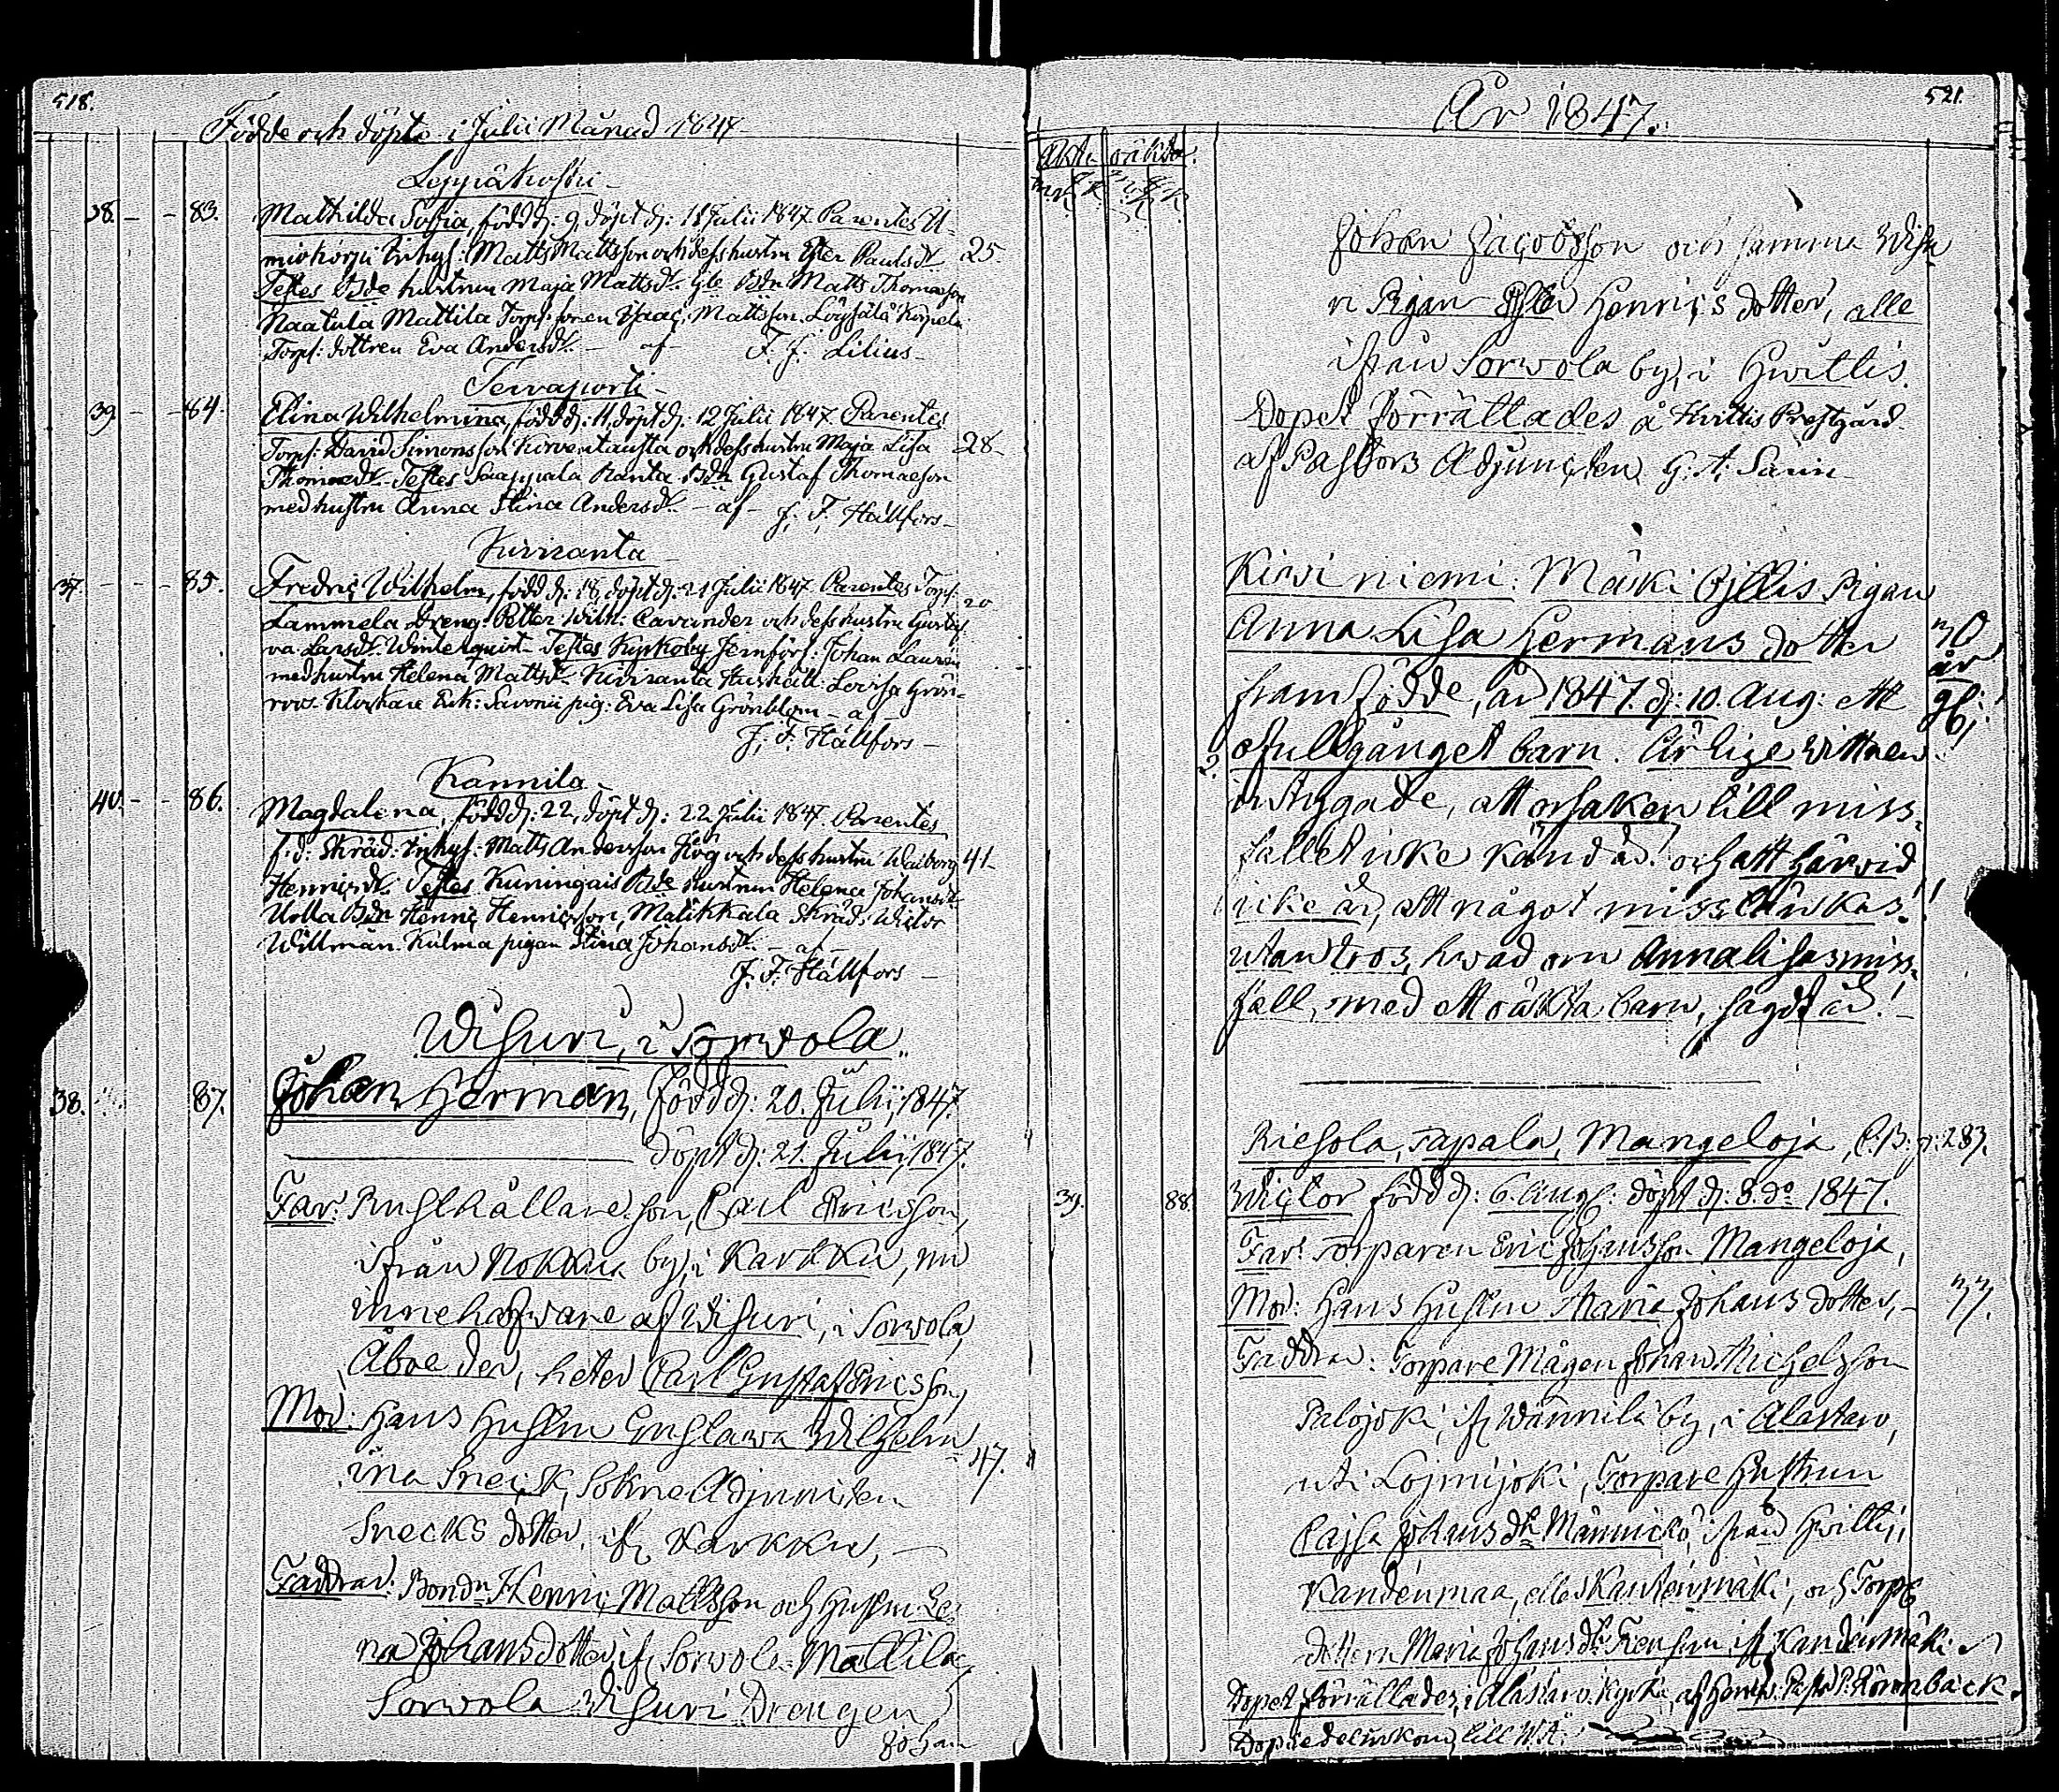 518.
Födde och döpte i Julii Månad 1847
Leppäkoski
38. - - 83. Mathilda Sofia, född d: 9, döpt d: 11 Julii 1847 Parentes
Inhys: Matts Mattsson och dess hustru Ester Paulsdr. 25.
Testes Bde hustrun Maja Mattsdr. Gle Bdn Matts Thomasson
Naatula Mattila Torp: sonen Isaac Mattsson. Korpela
Torp: dottren Eva Andersdr. - af - F. J. Lilius
Tervaporti
39. - - 84. Elina Wilhelmina, född d: 11, döpt d: 12 Julii 1847. Parentes
Torp: David Simonsson och dess hustru Maja Lisa 28-
Thomasdr. Testes Ranta Bdn Gustaf Thomasson
med hustru Anna Stina Andersdr. - af - J. F. Hällfors-
Kiviranta
37. - - - 85. Fredric Wilhelm, född d: 18, döpt d: 21 Julii 1847 Parentes Torp:
Lammela Dreng Petter Wilh: Cavander och dess hustru Gusta 20
va Larsdr. Winterqvist- Testes Kyrkoby Jernförs: Johan Lauren
med hustru Helena Mattsdr. Kiviranta Hushåll: Lovisa Grön-
roos. Klockare Enk: Savonii pig: Eva Lisa Grönblom - af
J. F. Hällfors -
Kannila
40. - - 86. Magdalena, född d: 22, döpt d: 22 Julii 1847. Parentes
f.d: Skräd: Inhys: Matts Andersson Hög och dess hustru Walborg 41-
Henricsdr. Testes Kuningais Bde hustrun Helena Johansdr.
Ulla Bdn Henric Henricsson, Matikkala Skräd: Wictor
Willman. Kulma pigan Stina Johansdr. - af -
J. F. Hällfors -
Wisuri, i Sorwola.
38. 87. Johan Herman, född d: 20. Julii, 1847.
döpt d: 21. Julii, 1847.
Far: Rusthållare son, Carl Ericsson,
ifrån Nokkua by, i Karkku, nu
innehafware af Wisuri, i Sorwola,
Åboe der, heter Carl Gustaf Ericsson,
Mor: Hans Hustru Gustawa Wilhelm
ina Sneck, Sokne Adjuncten 47.
Snecks dotter, ifr Karkku, -
Faddrar: Bondn Henric Mattsson och Hustru Le
na Johansdotter, ifr Sorwola Mattila,
Sorwola Wisuri Drengen
Johan
521.
År 1847.
Äkta oäkta.
m. q. m. q.
Johan Jacobsson och samma Wisu
ri Pigan Ester Henrics dotter, alle
ifrån Sorwola by, i Hwittis.
Dopet förrättades å Hvittis Prestgård
af Pastors Adjuncten G. A. Sanin
Kirvi niemi Mäki Pigan
Anna Lisa Hermans dotter 30
år
framfödde, år 1847. d: 10. Aug: ett
2. ofullgånget barn. Ärlige vittnen
intygade, att orsaken till miss-
fallet icke känd är! och att härvid
icke är, att något misstänkas!!
utan tros, hwad om Annalisas miss-
fall, med ett oäkta barn, sagdt är! -
Riesola, Tapala, Mangeloja, C.B. p: 283.
39. 88. Wictor född d: 6. Aug: döpt d: 8. do 1847.
Far: Torparen Eric Johansson Mangeloja,
Mor: Hans Hustru Maria Johans dotter, - 33.
Faddrar: Torpare Mågen Johan Michelsson
Palojoki, ifr Wännilä by, i Alastaro,
uti Loimijoki, Torpare Hustrun
Cajsa Johans dtr Männickö, ifrån Hwittis,
Kandenmaa, eller Kantenmäki, och Torp:
dottern Maria Johans dtr ifr Kandenmäki
Dopet förrättades, i Alastaro kyrka, af Herr Past: Törnbäck.